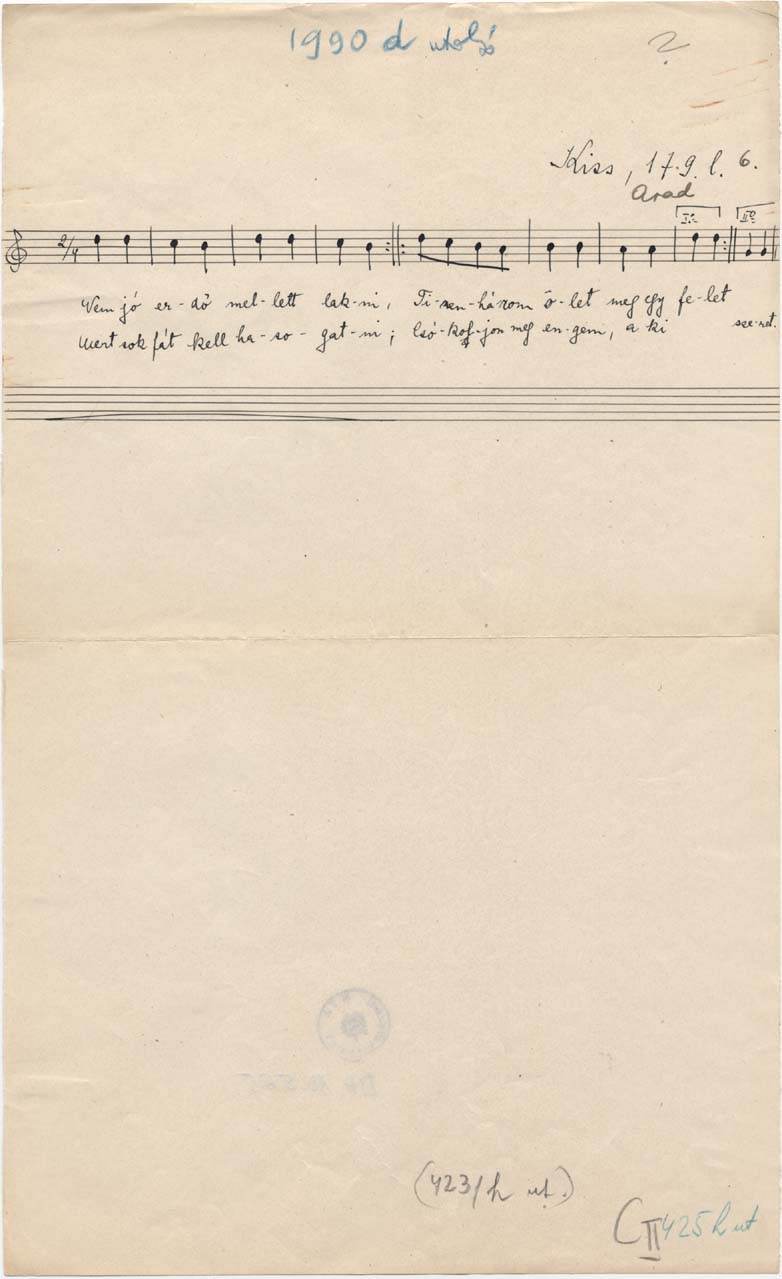 1990 d utolsó
?
Kiss, 17.9. l. 6.
Arad
2/4 Iº IIº
Nem jó er-dő mel-lett lak-ni, Ti-zen-három ö-let meg egy fe-let
Mert sok fát kell ha-so-gat-ni; Csó-kol-jon meg en-gem, a ki sze-ret.
(423/h ut.)
C II 425 h ut